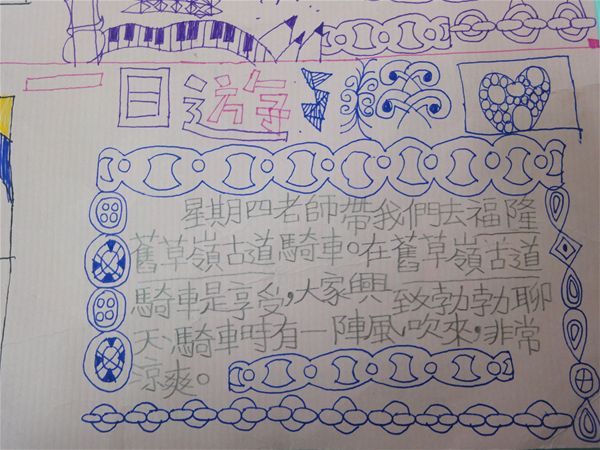 一日遊
星期四老師帶我們去福隆
舊草嶺古道騎車。在舊草嶺古道
騎車是享受，大家興致勃勃聊
天，騎車時有一陣風吹來，非常
涼爽。